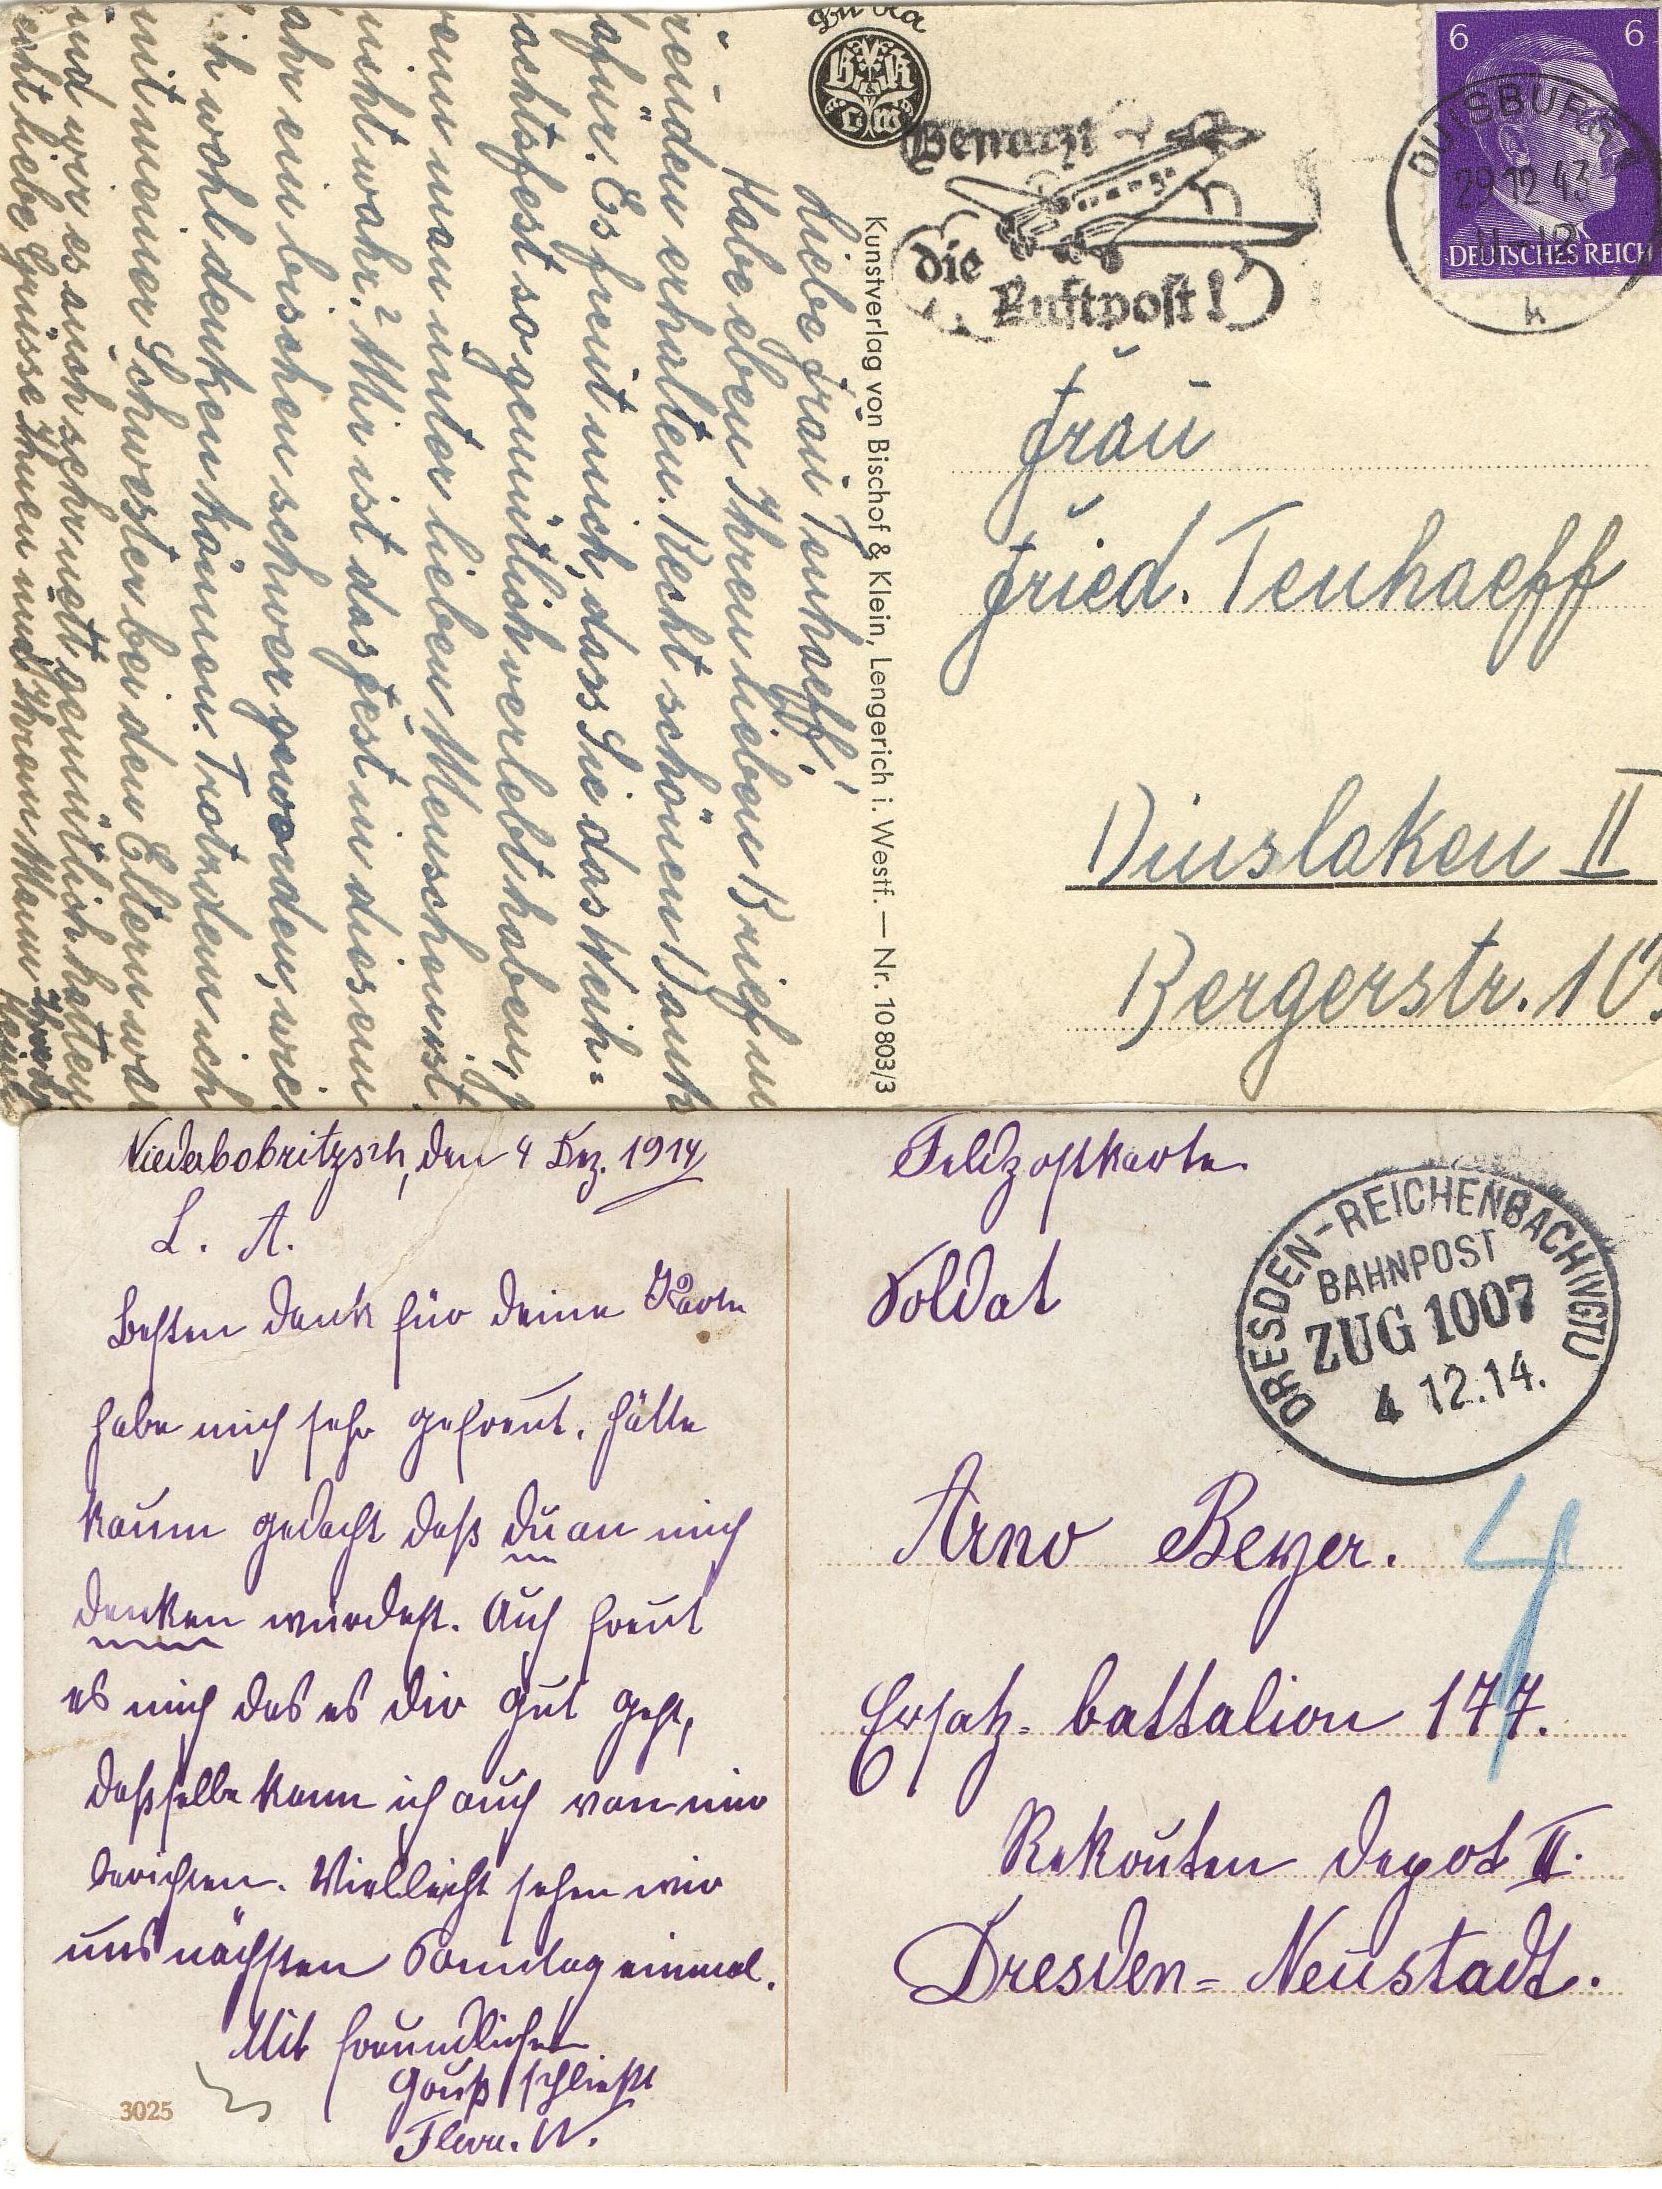 BuKa
B&K
L.W.
Benutzt
die
Luftpost!
6 6
DEUTSCHES REICH
DUISBURG
29.12.43
11-12
h
Frau
Fried. Tenhaeff
Dinslaken II
Bergerstr. 10
Kunstverlag von Bischof & Klein, Lengerich i. Westf. — Nr. 10803/3
Liebe Frau Tenhaeff!
Habe eben Ihren lieben Brief m.
Freuden erhalten. Recht schönen Dank
dafür. Es freut mich, dass Sie das Weih-
nachtsfest so gemütlich verlebt haben,
wenn man unter lieben Menschen ist
nicht wahr? Mir ist das Fest in diesem
Jahr ein bischen schwer geworden, wie
ich wohl denken können. Trotzdem ich
mit meiner Schwester bei den Eltern war
und wir es auch sehr nett gemütlich hatten
Recht liebe Grüsse Ihnen und Ihrem Mann
Niederbobritzsch, den 4 Dez. 1914
L. A.
Besten Dank für deine Karte
habe mich sehr gefreut. Hätte
kaum gedacht daß du an mich
denken würdest. Auch freut
es mich das es dir gut geht,
dasselbe kann ich auch von mir
berichten. Vielleicht sehen wir
uns nächsten Sonntag einmal.
Mit freundlichen
Gruß schließt
W.
3025
Feldpostkarte
Soldat
DRESDEN-REICHENBACH i VGTL
BAHNPOST
ZUG 1007
4 12.14.
Arno Beyer.
4
Ersatz-battalion 177.
Rekruten depot II.
Dresden-Neustadt.